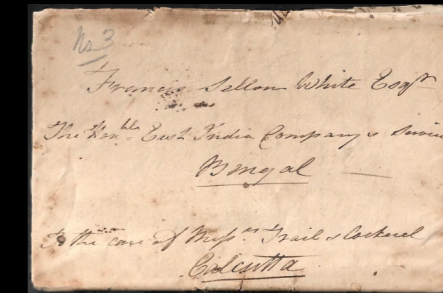 No 3
Francis Sellon White Esqr
The Honble East India Company's Servi
Bengal
To the care of Messrs Trail & Cockerel
Calcutta